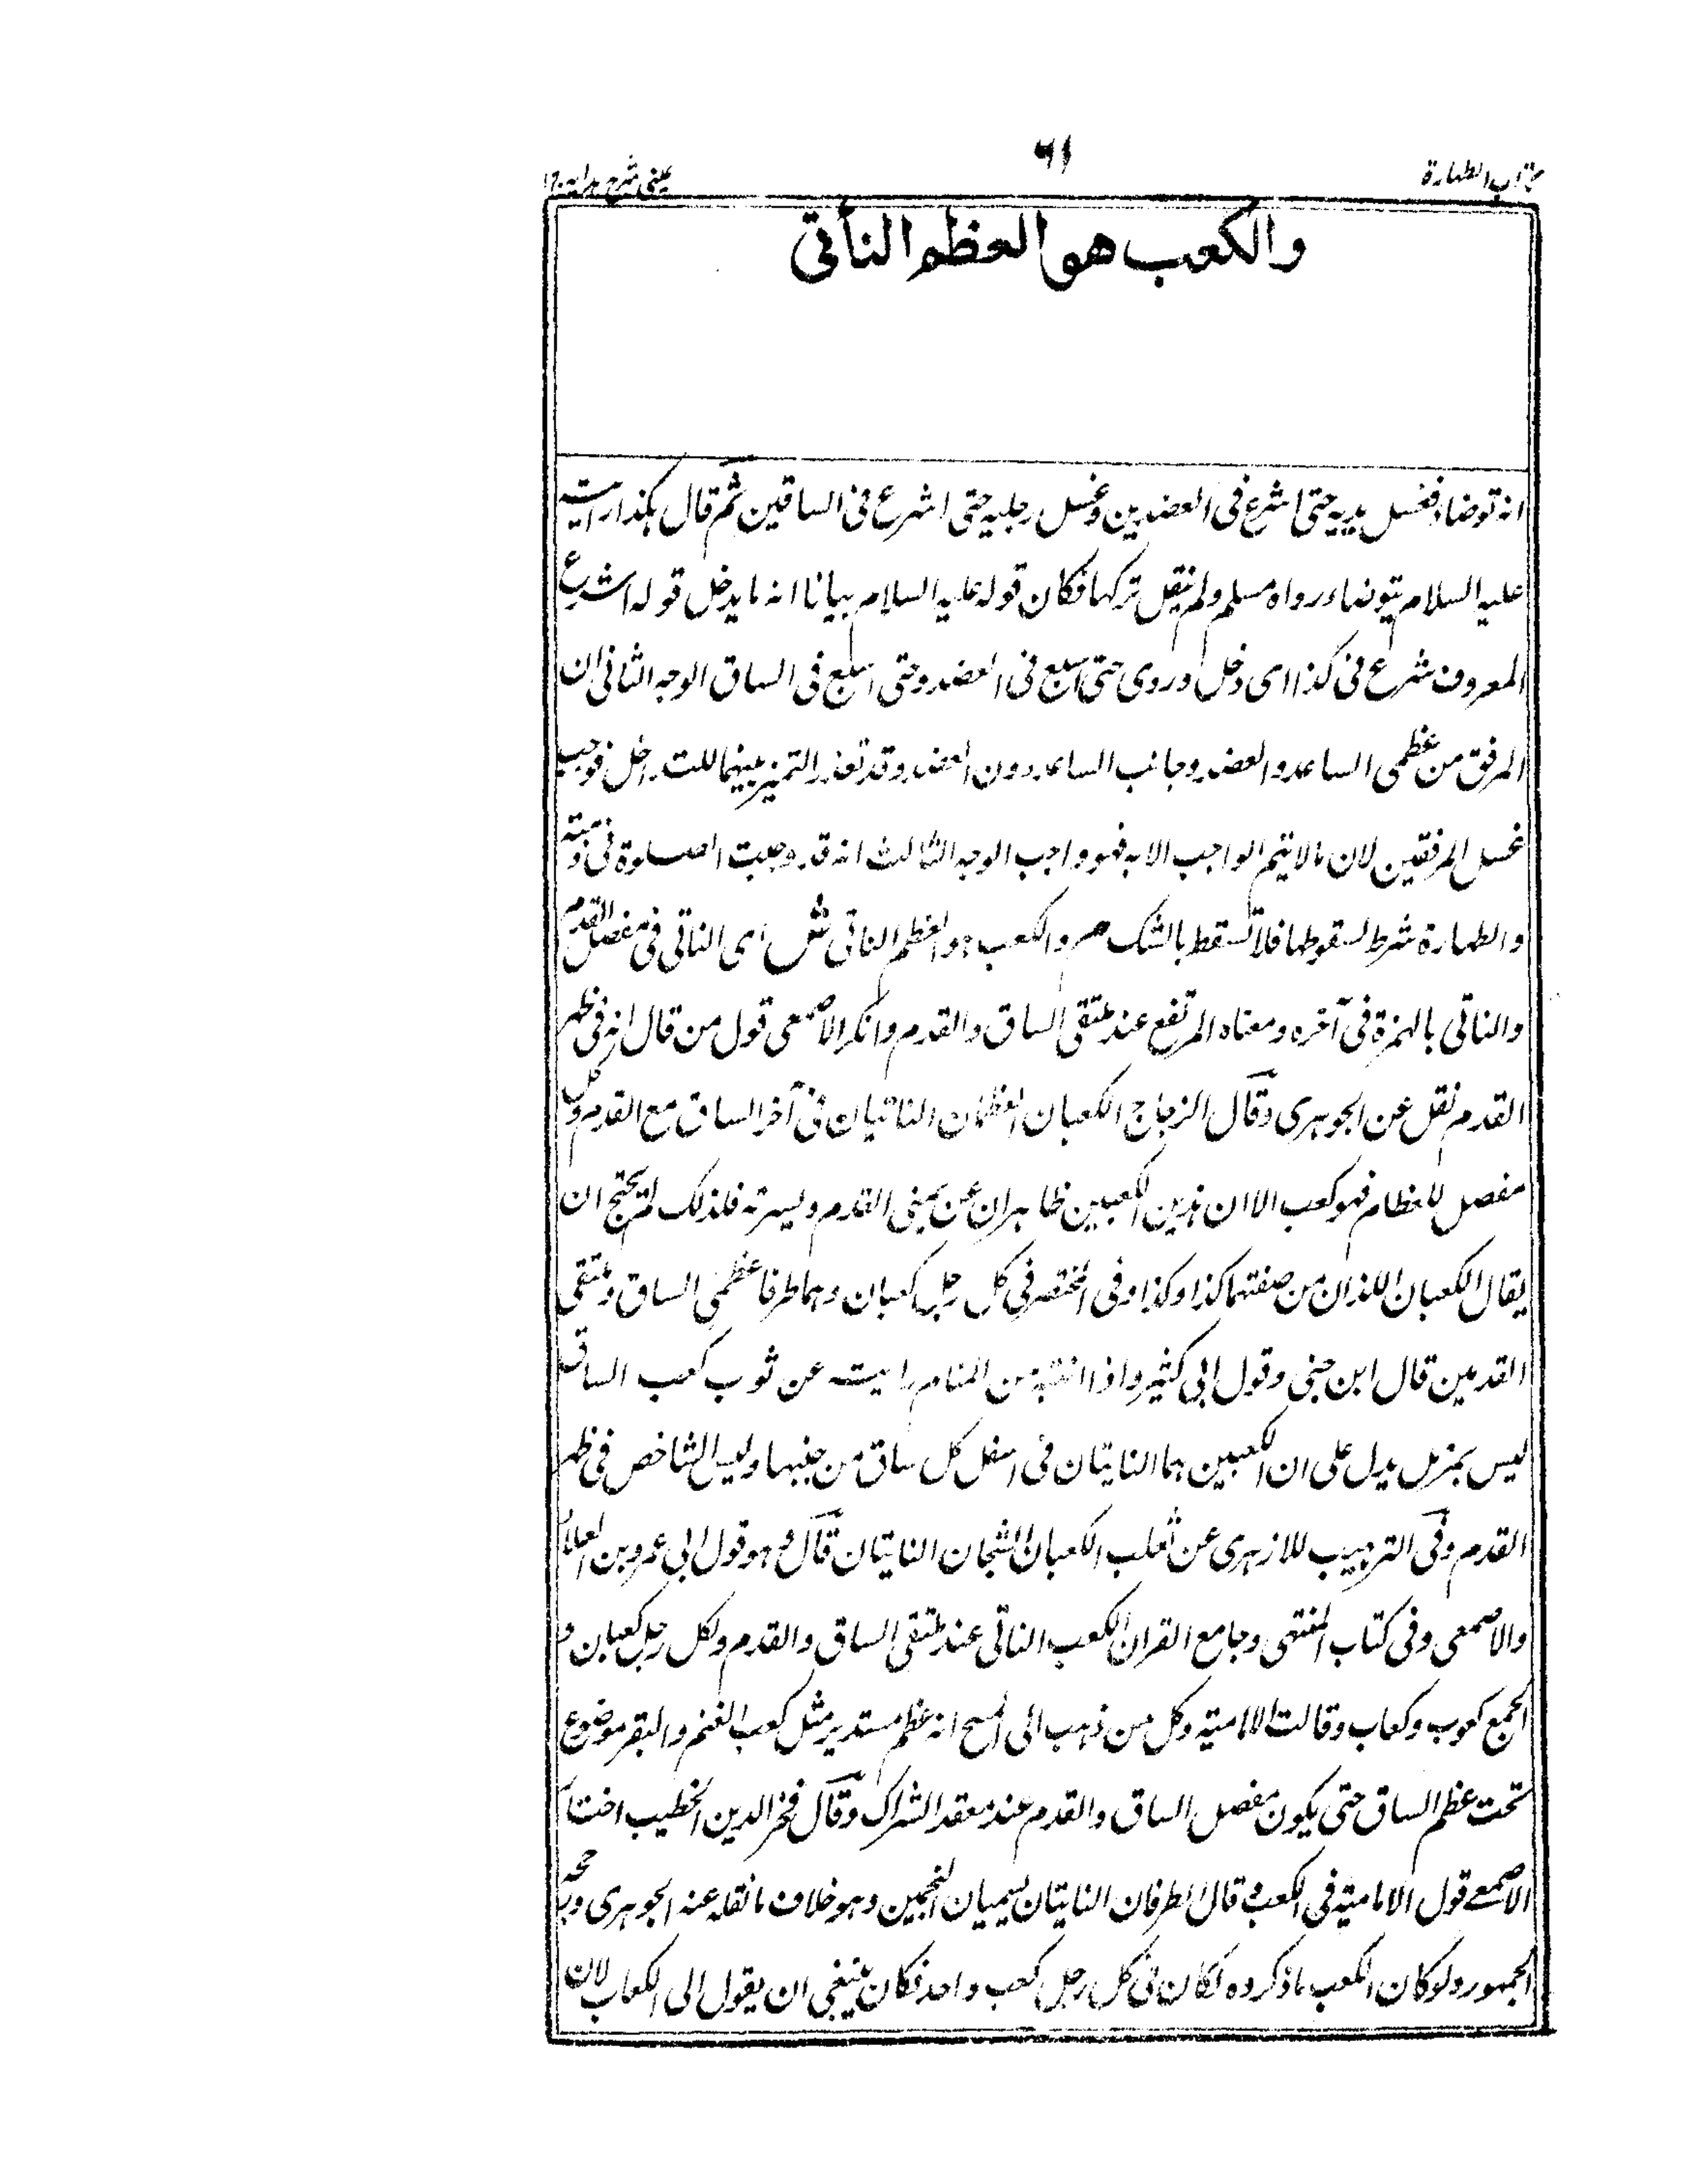 كتاب الطهارة
٦١
عينى شرح هداية ج ا
والكعب هو العظم الناتئ
انه توضاء فغسل يديه حتى اشرع فى العضدين وغسل رجليه حتى اشرع فى الساقين ثم قال هكذا رايت
عليه السلام يتوضاء رواه مسلم ولم ينقل تركها فكان قوله عليه السلام بيانا انه ما يدخل قوله اشرع
المعروف شرع فى كذا اى دخل وروى حتى اسبع فى العضد وحتى اسبع فى الساق الوجه الثانى ان
المرفق من عظمى الساعد والعضد وجانب الساعد دون العضد وقد تعذر التميز بينهما للتداخل فوجب
غسل المرفقين لان مالا يتم الواجب الا به فهو واجب الوجه الثالث انه قد وجبت الصلوة فى ذمته
والطهارة شرط لسقوطها فلا تسقط بالشك صم والكعب هو العظم الناتى ش اى الناتى فى مفصل القدم
والناتى بالهمزة فى آخره ومعناه المرتفع عند ملتقى الساق والقدم وانكر الاصمعى قول من قال انه فى ظهر
القدم نقل عن الجوهرى وقال الزجاج الكعبان العظمان الناتيان فى آخر الساق مع القدم وكل
مفصل للعظام فهو كعب الا ان هذين الكعبين ظاهران عن يمنى القدم ويسرته فلذلك لم يحتج ان
يقال الكعبان اللذان من صفتهما كذا وكذا وفى المختصر فى كل رجل كعبان وهما طرفا عظمى الساق وملتقى
القدمين قال ابن جنى وقول ابى كثير واذا انتبه من المنام رايته عن ثوب كعب الساق
ليس بمنزل يدل على ان الكعبين هما الناتيان فى اسفل كل ساق من جنبها وليس الشاخص فى ظهر
القدم وفى الترهيب للازهرى عن ثعلب الكعبان المنجمان الناتيان قال وهو قول ابى عمرو بن العلاء
والاصمعى وفى كتاب المنتهى وجامع القران الكعب الناتى عند ملتقى الساق والقدم ولكل رجل كعبان و
الجمع كعوب وكعاب وقالت الامامية وكل من ذهب الى المسح انه عظم مستدير مثل كعب الغنم والبقر موضوع
تحت عظم الساق حتى يكون مفصل الساق والقدم عند معقد الشراك وقال فخر الدين الخطيب اختار
الاصمعى قول الامامية فى الكعب وقال الطرفان الناتيان يسميان المنجمين وهو خلاف ما نقله عنه الجوهرى وحجة
الجمهور ولو كان الكعب ما ذكروه لكان فى كل رجل كعب واحد فكان ينبغى ان يقول الى الكعاب لان